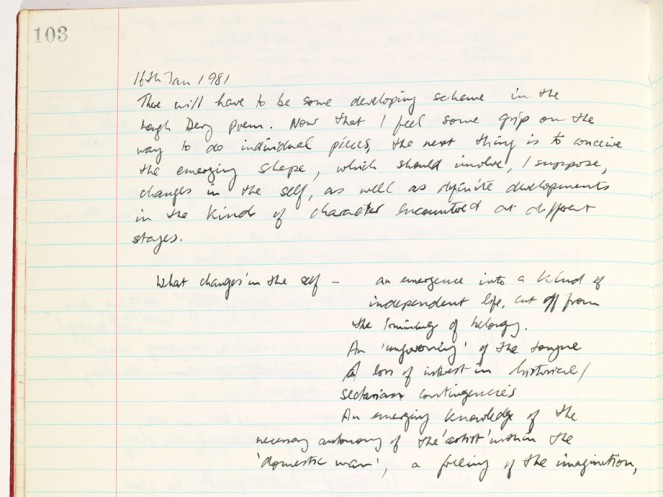 103
16th Jan 1981
There will have to be some developing scheme in the
Lough Derg poem. Now that I feel some grip on the
way to do individual pieces, the next thing is to conceive
the emerging shape, which should involve, I suppose,
changes in the self, as well as definite developments
in the kinds of character encountered at different
stages.
What changes in the self – an emergence into a kind of
independent life, cut off from
the of belonging.
An 'ungoverning' of the tongue
A loss of interest in historical/
sectarian contingencies
An emerging knowledge of the
necessary autonomy of the 'artist' within the
'domestic man', a freeing of the imagination,